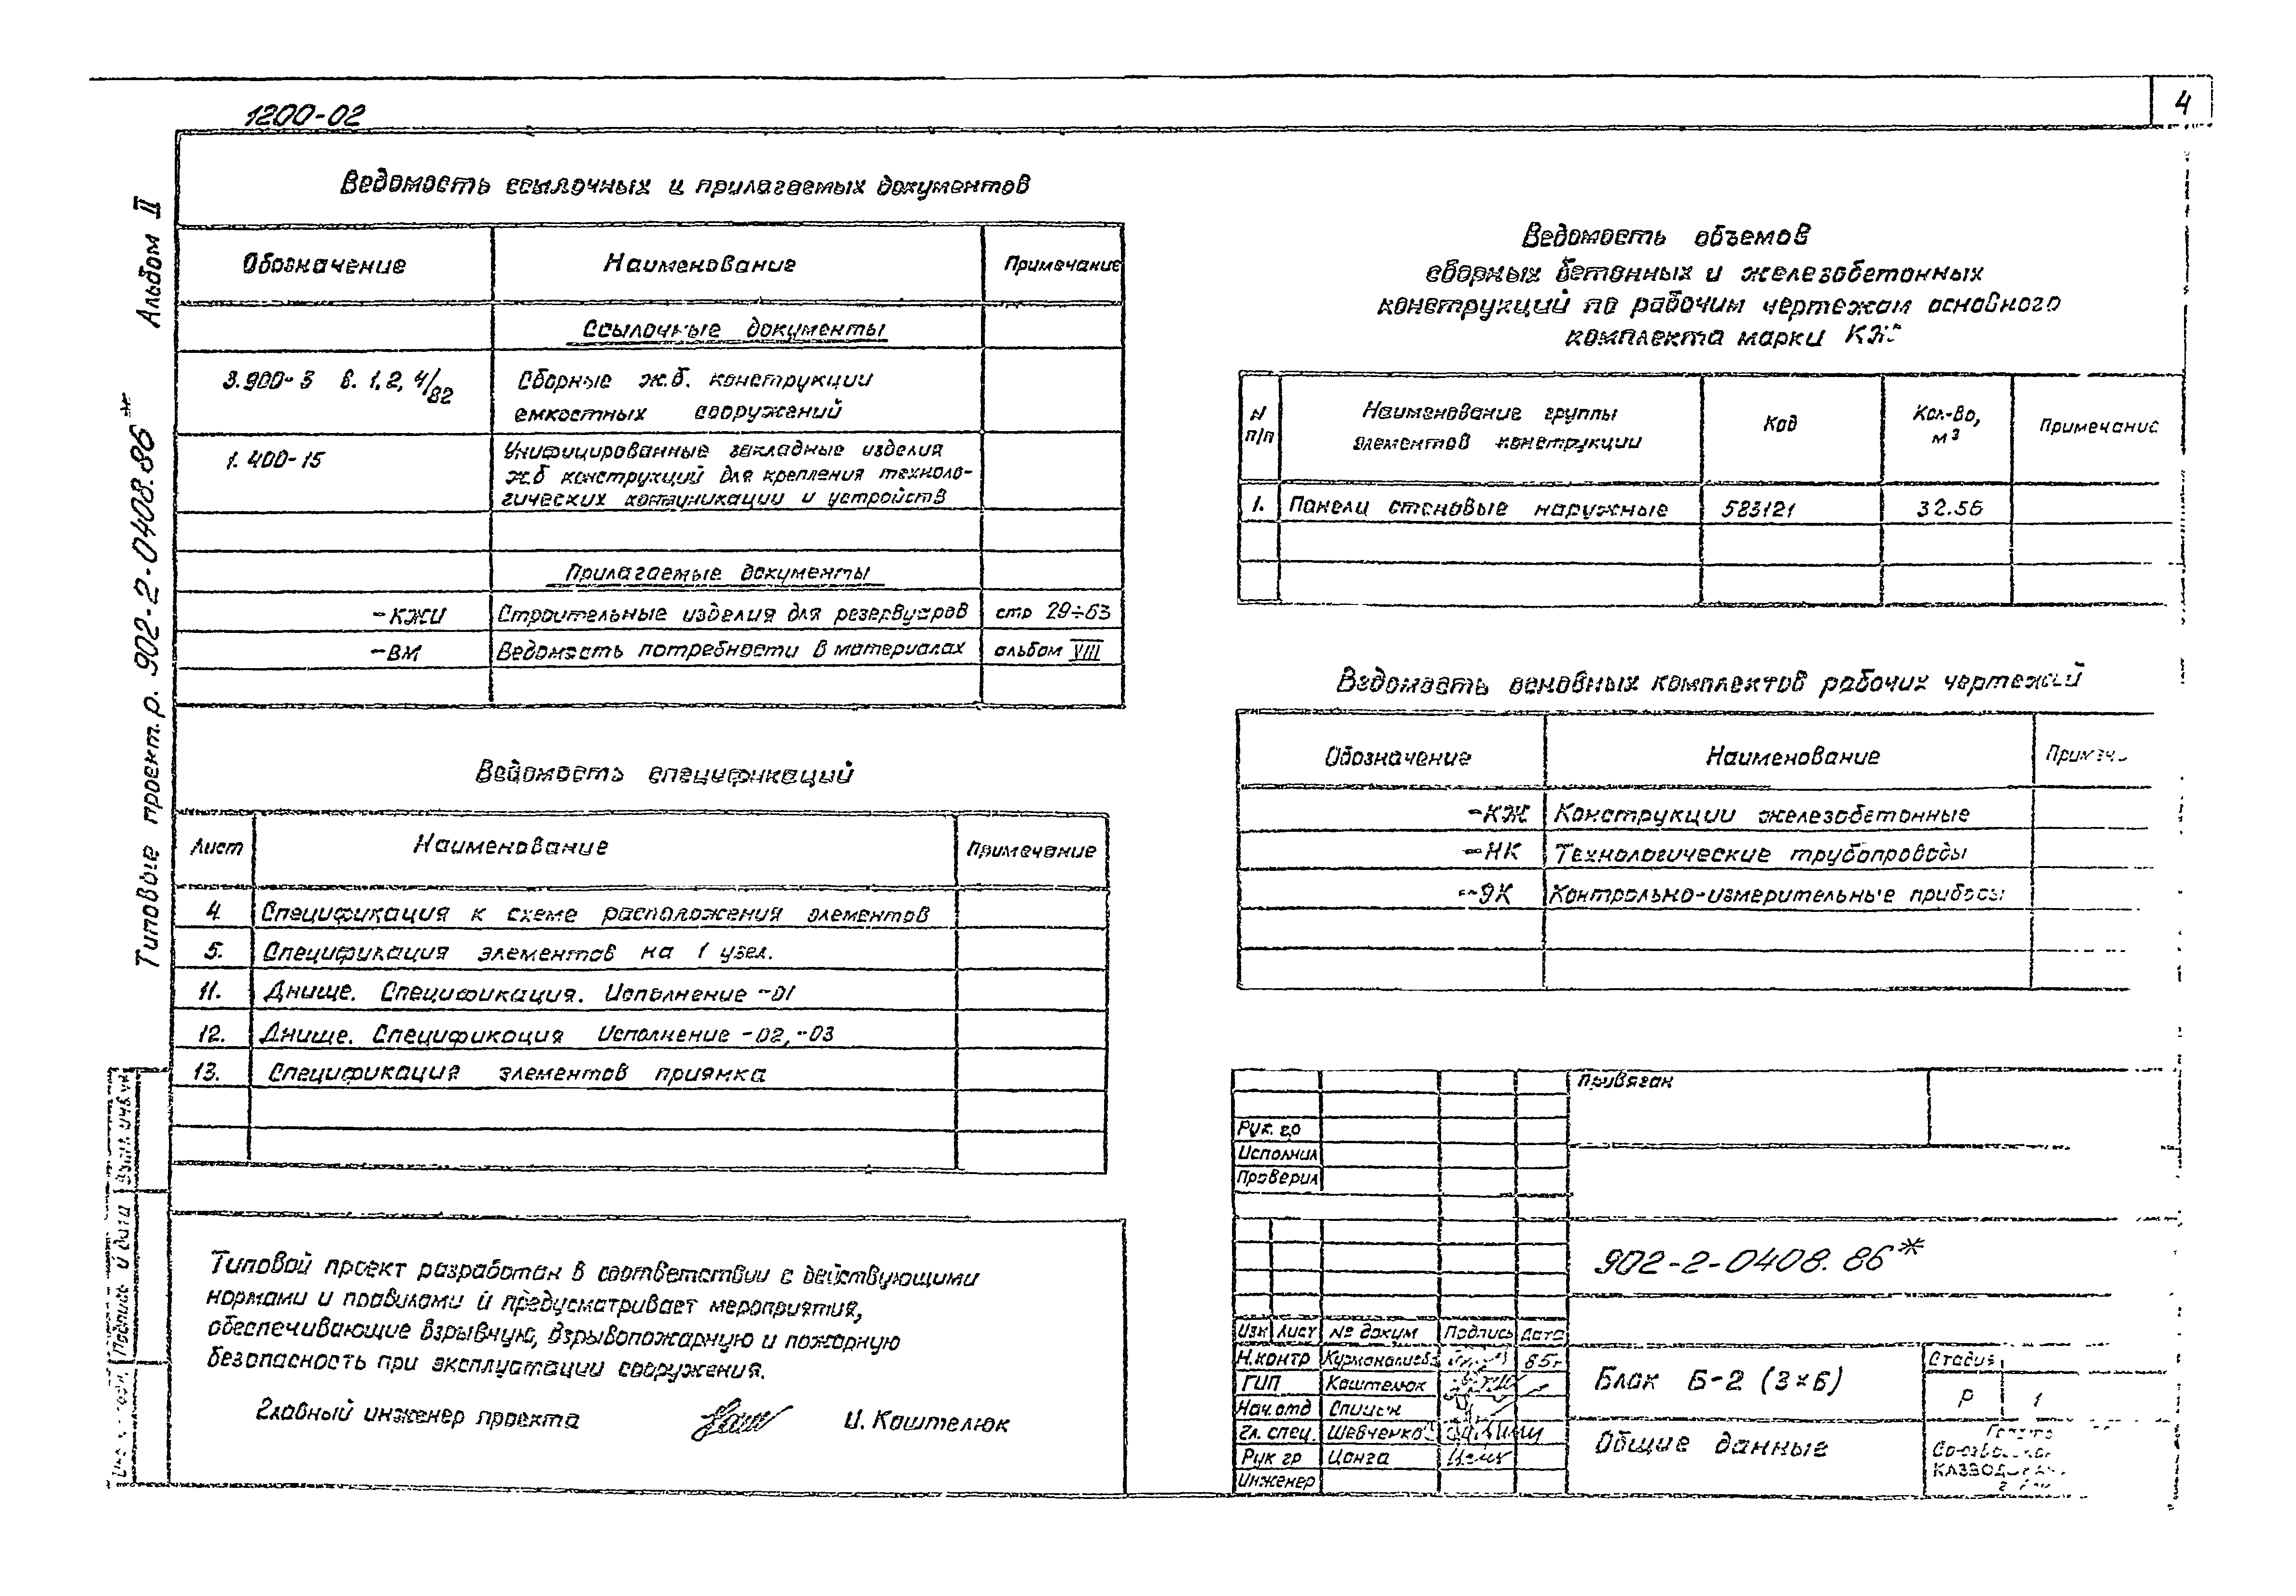 4
1200-02
Альбом II
Типовые проект. р. 902-2-0408.86*
Ведомость ссылочных и прилагаемых документов
Обозначение Наименование Примечание
Ссылочные документы
3.900-3 в. 1, 2, 4/82 Сборные ж.б. конструкции
емкостных сооружений
1.400-15 Унифицированные закладные изделия
ж.б конструкций для крепления техноло-
гических коммуникации и устройств
Прилагаемые документы
-КЖИ Строительные изделия для резервуаров стр 29÷63
-ВМ Ведомость потребности в материалах альбом VIII
Ведомость спецификаций
Лист Наименование Примечание
4. Спецификация к схеме расположения элементов
5. Спецификация элементов на 1 узел.
11. Днище. Спецификация. Исполнение -01
12. Днище. Спецификация Исполнение -02, -03
13. Спецификация элементов приямка
Типовой проект разработан в соответствии с действующими
нормами и правилами и предусматривает мероприятия,
обеспечивающие взрывную, взрывопожарную и пожарную
безопасность при эксплуатации сооружения.
Главный инженер проекта И. Каштелюк
Ведомость объемов
сборных бетонных и железобетонных
конструкций по рабочим чертежам основного
комплекта марки КЖ
N п/п Наименование группы элементов конструкции Код Кол-во, м³ Примечание
1. Панели стеновые наружные 583121 32.56
Ведомость основных комплектов рабочих чертежей
Обозначение Наименование Примеч.
-КЖ Конструкции железобетонные
-НК Технологические трубопроводы
-ЭК Контрольно-измерительные приборы
Привязан
Рук. гр
Исполнил
Проверил
902-2-0408.86*
Изм Лист № докум Подпись Дата
Н.контр Курманалиева 85г
ГИП Каштелюк
Нач.отд
Гл. спец. Шевченко
Рук гр Цонга
Инженер
Блок Б-2 (3×6)
Общие данные
Стадия
Р 1
Подпись и дата